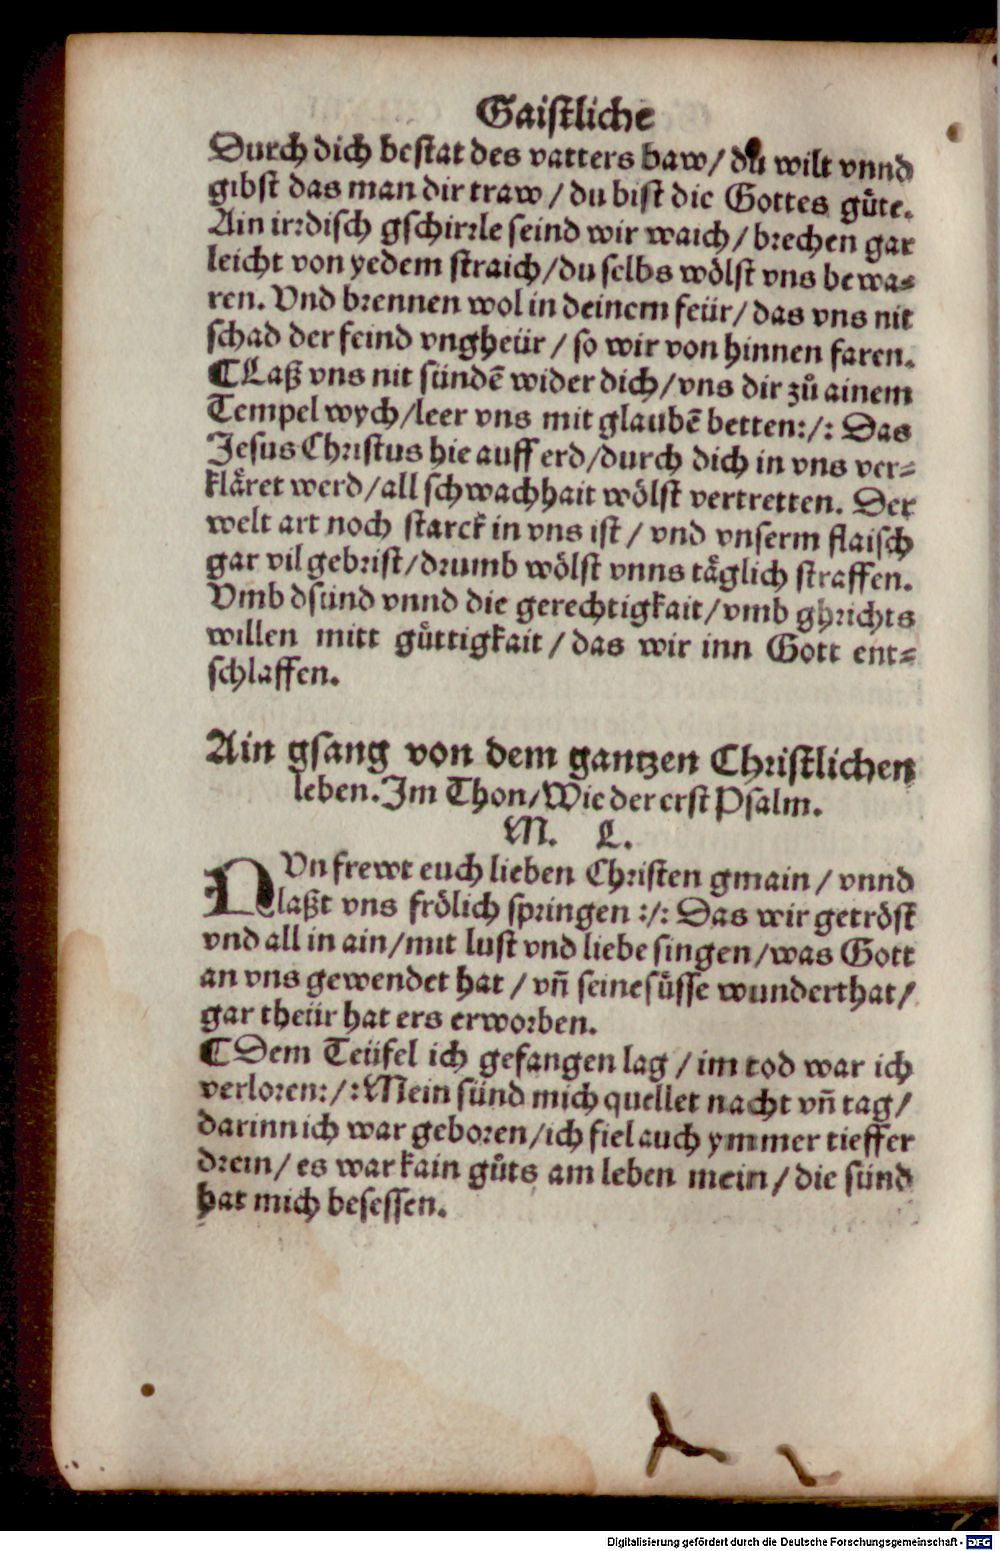 Gaiſtliche
Durch dich beſtat des vatters baw / du wilt vnnd
gibſt das man dir traw / du biſt die Gottes guͤte.
Ain irꝛdiſch gſchirꝛle ſeind wir waich / bꝛechen gar
leicht von yedem ſtraich / du ſelbs woͤlſt vns bewa⸗
ren. Vnd bꝛennen wol in deinem feür / das vns nit
ſchad der feind vngheür / ſo wir von hinnen faren.
¶ Laß vns nit ſündē wider dich / vns dir zuͦ ainem
Tempel wych / leer vns mit glaubē betten :/: Das
Jeſus Chꝛiſtus hie auff erd / durch dich in vns ver⸗
klaͤret werd / all ſchwachhait woͤlſt vertretten. Der
welt art noch ſtarck in vns iſt / vnd vnſerm flaiſch
gar vil gebꝛiſt / dꝛumb woͤlſt vnns taͤglich ſtraffen.
Vmb dſünd vnnd die gerechtigkait / vmb ghꝛichts
willen mitt guͤttigkait / das wir inn Gott ent⸗
ſchlaffen.
Ain gſang von dem gantzen Chꝛiſtlichen
leben. Im Thon / Wie der erſt Pſalm.
M. L.
NVn frewt euch lieben Chꝛiſten gmain / vnnd
laßt vns froͤlich ſpꝛingen :/: Das wir getroͤſt
vnd all in ain / mit luſt vnd liebe ſingen / was Gott
an vns gewendet hat / vn̄ ſeine ſuͤſſe wunderthat /
gar theür hat ers erwoꝛben.
¶ Dem Teüfel ich gefangen lag / im tod war ich
verloꝛen :/: Mein ſünd mich quellet nacht vn̄ tag /
darinn ich war geboꝛen / ich fiel auch ymmer tieffer
dꝛein / es war kain guͤts am leben mein / die ſünd
hat mich beſeſſen.
Digitalisierung gefördert durch die Deutsche Forschungsgemeinschaft - DFG